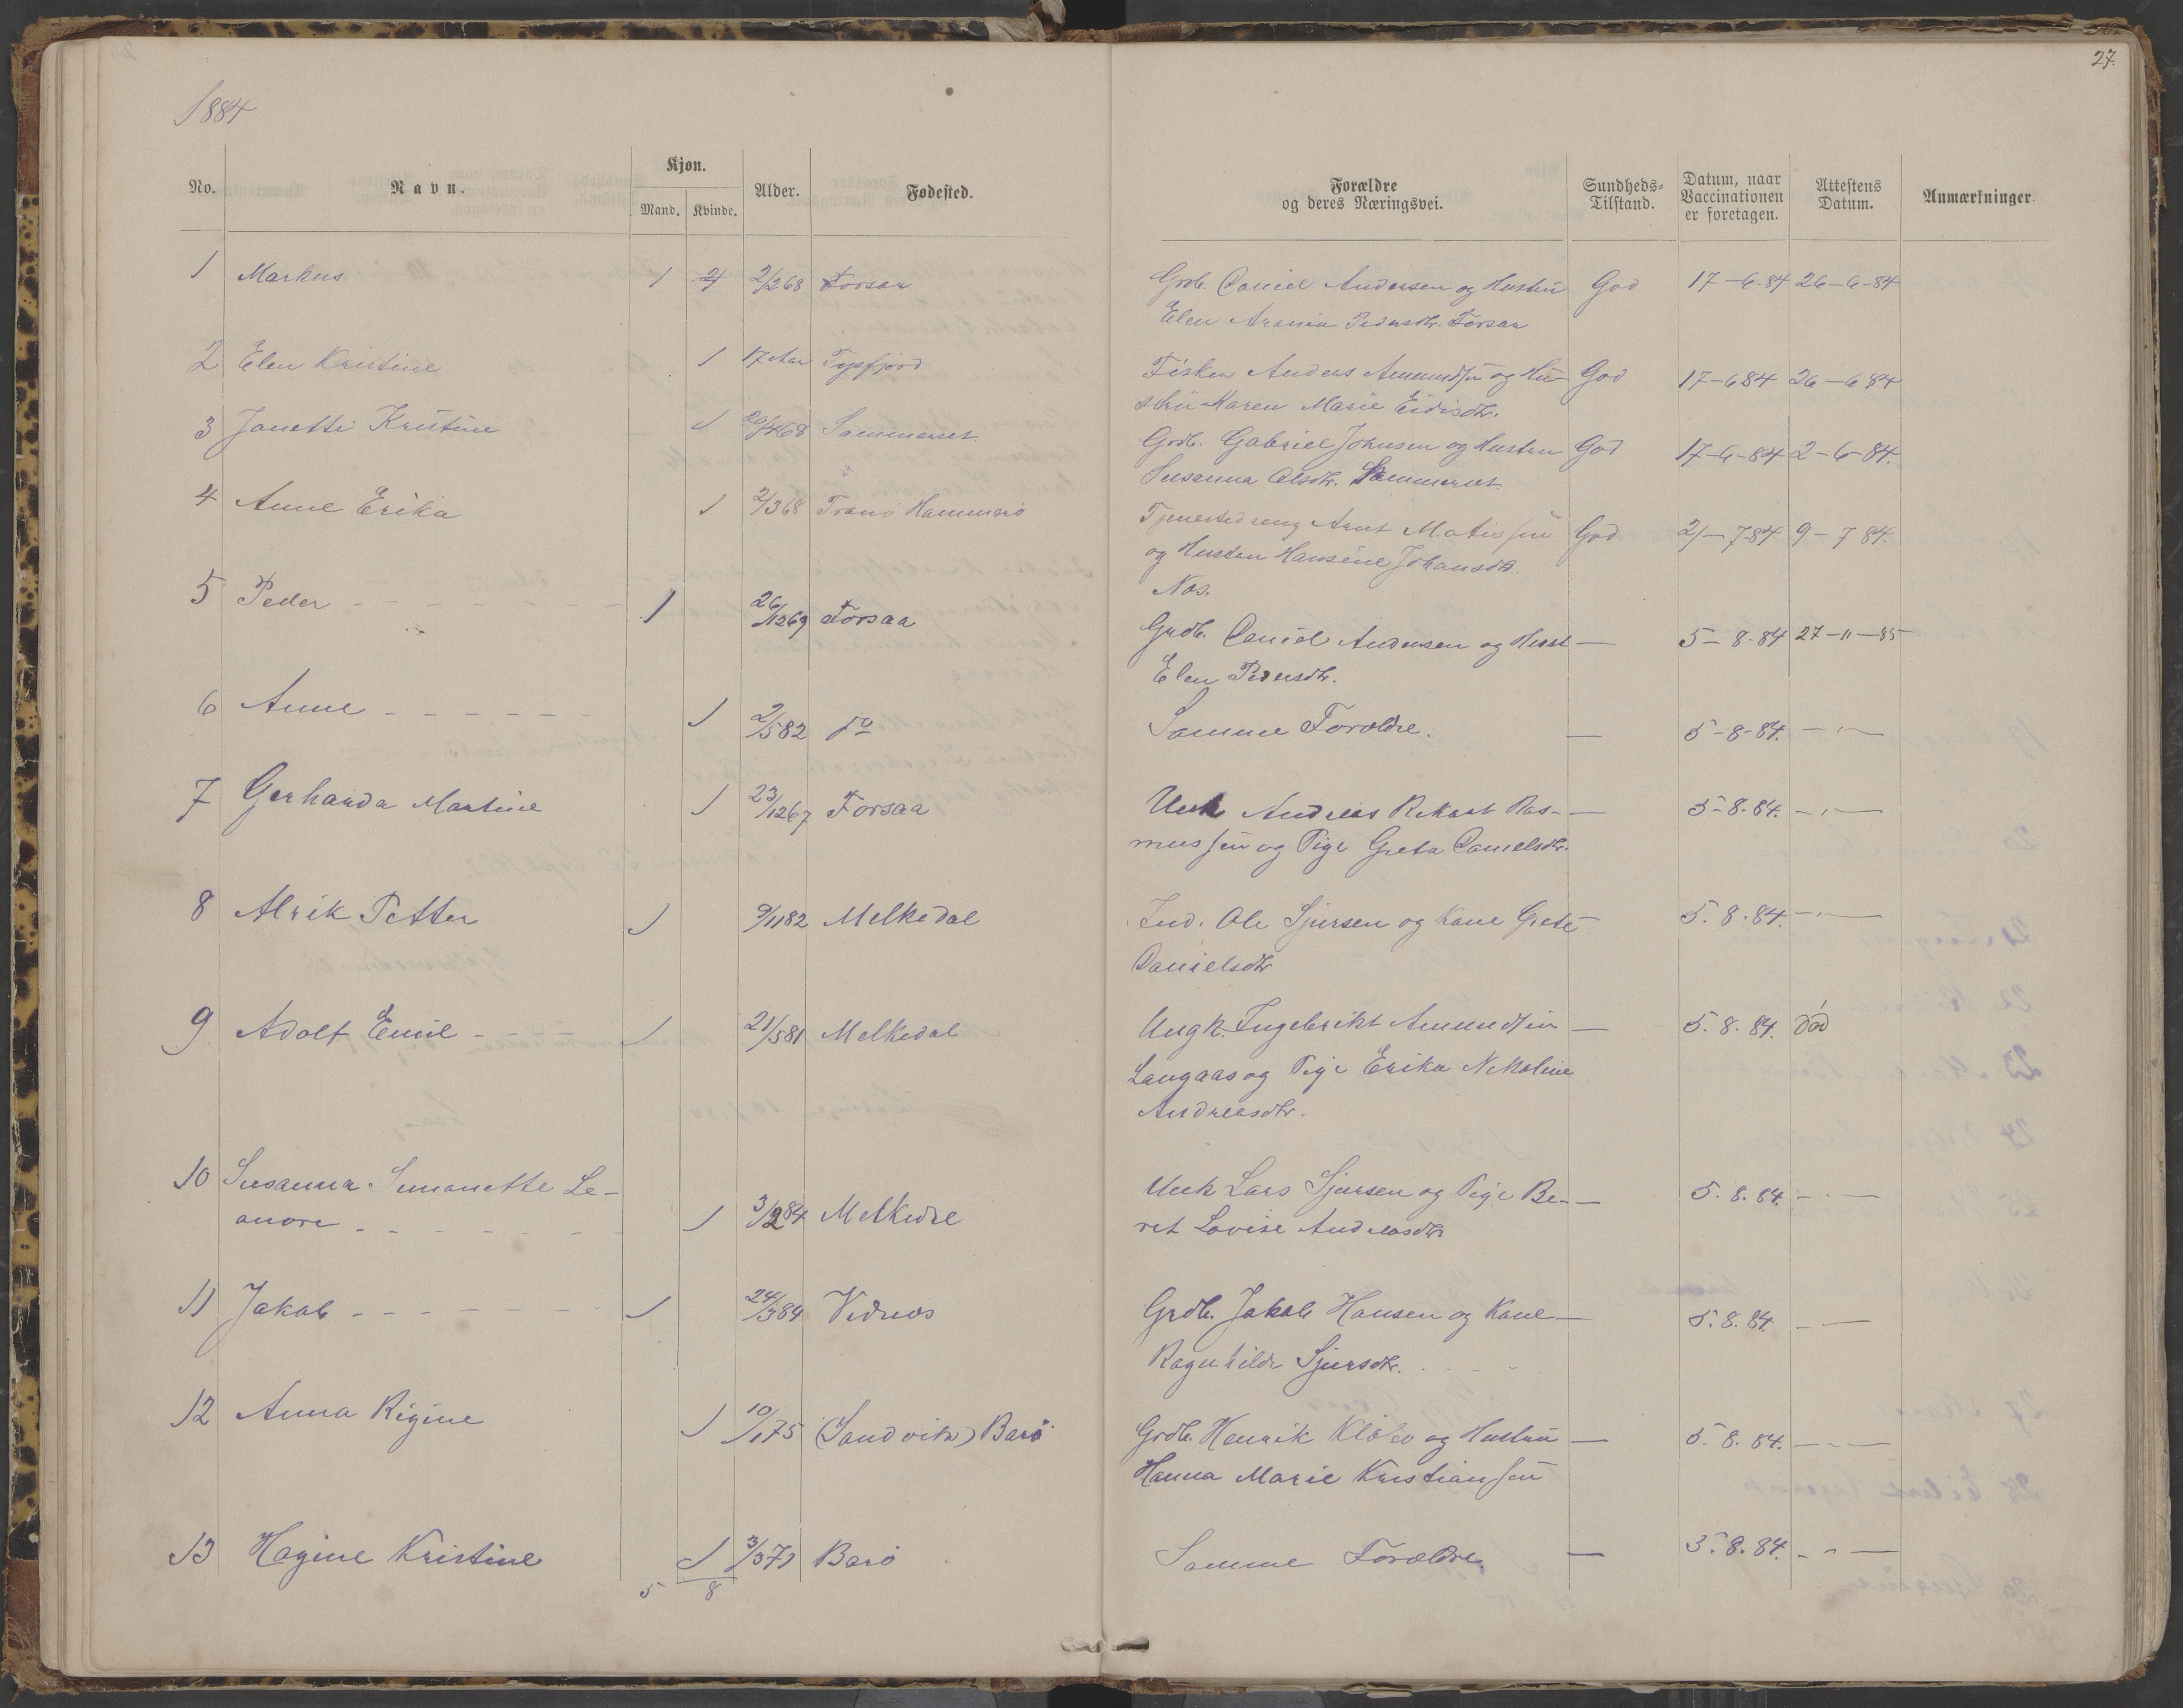 27.
1884
No. Navn. Kjøn. Mand. Kvinde. Alder. Fødested.
Forældre og deres Næringsvei. Sundheds-Tilstand. Datum, naar Vaccinationen er foretagen. Attestens Datum. Anmærkninger.
1 Markus 1 2/2 68 Forsaa Grdb. Daniel Andersen og Hustru God 17-6-84 26-6-84
Elen Pedersdtr. Forsaa
2 Elen Kristine 1 17 Aar Tysfjord Fisker Anders Amundsen og Hu- God 17-6 84 26-6 84
stru Karen Marie Eidisdtr.
3 Janetti Kristine 1 20/4 68 Sommerset Grdb. Gabriel Johnsen og Hustru God 17-6-84 2-6-84.
Susanna Olsdtr. Sommerset
4 Anne Erika 1 2/3 68 Tranø Hammerø Tjenestedreng Arnt Matissen God 2/-7-84 9-7 84.
og Hustru Hansine Johansdtr.
Nos.
5 Peder - - - - - - - 1 26/12 69 Forsaa Grdb. Daniel Andersen og Hust — 5-8-84 27-11-85
Elen Pedersdtr.
6 Anne - - - - - - 1 2/5 82 do Samme Forældre. — 5-8-84. — " —
7 Gerharda Martine 1 23/12 67 Forsaa Unk Andreas Rikart Ras- — 5-8-84. — " —
mussen og Pige Greta Danielsdtr.
8 Alrik Petter 1 9/11 82 Melkedal Ind. Ole Sjursen og Kone Grete — 5.8.84. — " —
Danielsdtr
9 Adolf Emil - - - - 1 21/5 81 Melkedal Ungk. Ingebrikt Amundsen — 5.8.84. Död
Langaas og Pige Erika Nikoline
Andreasdtr.
10 Susanna Simonette Le-
anore - - - - - - - 1 3/2 84 Melkedal
Unk Lars Sjursen og Pige Be- — 5.8.84. — " —
ret Lovise Andreasdtr
11 Jakob - - - - - - - 1 24/3 84 Vidnes Grdb. Jakob Hansen og Kone — 5.8.84 — " —
Ragnhilde Sjursdtr. - - - -
12 Anna Rigine 1 10/1 75 (Sandvik) Barø Grdb. Henrik Kløbo og Hustru — 5.8.84. — " —
Hanna Marie Kristiansen
13 Hagine Kristine 1 3/3 77 Barø Samme Forældre. — 5.8.84. — " —
5 8